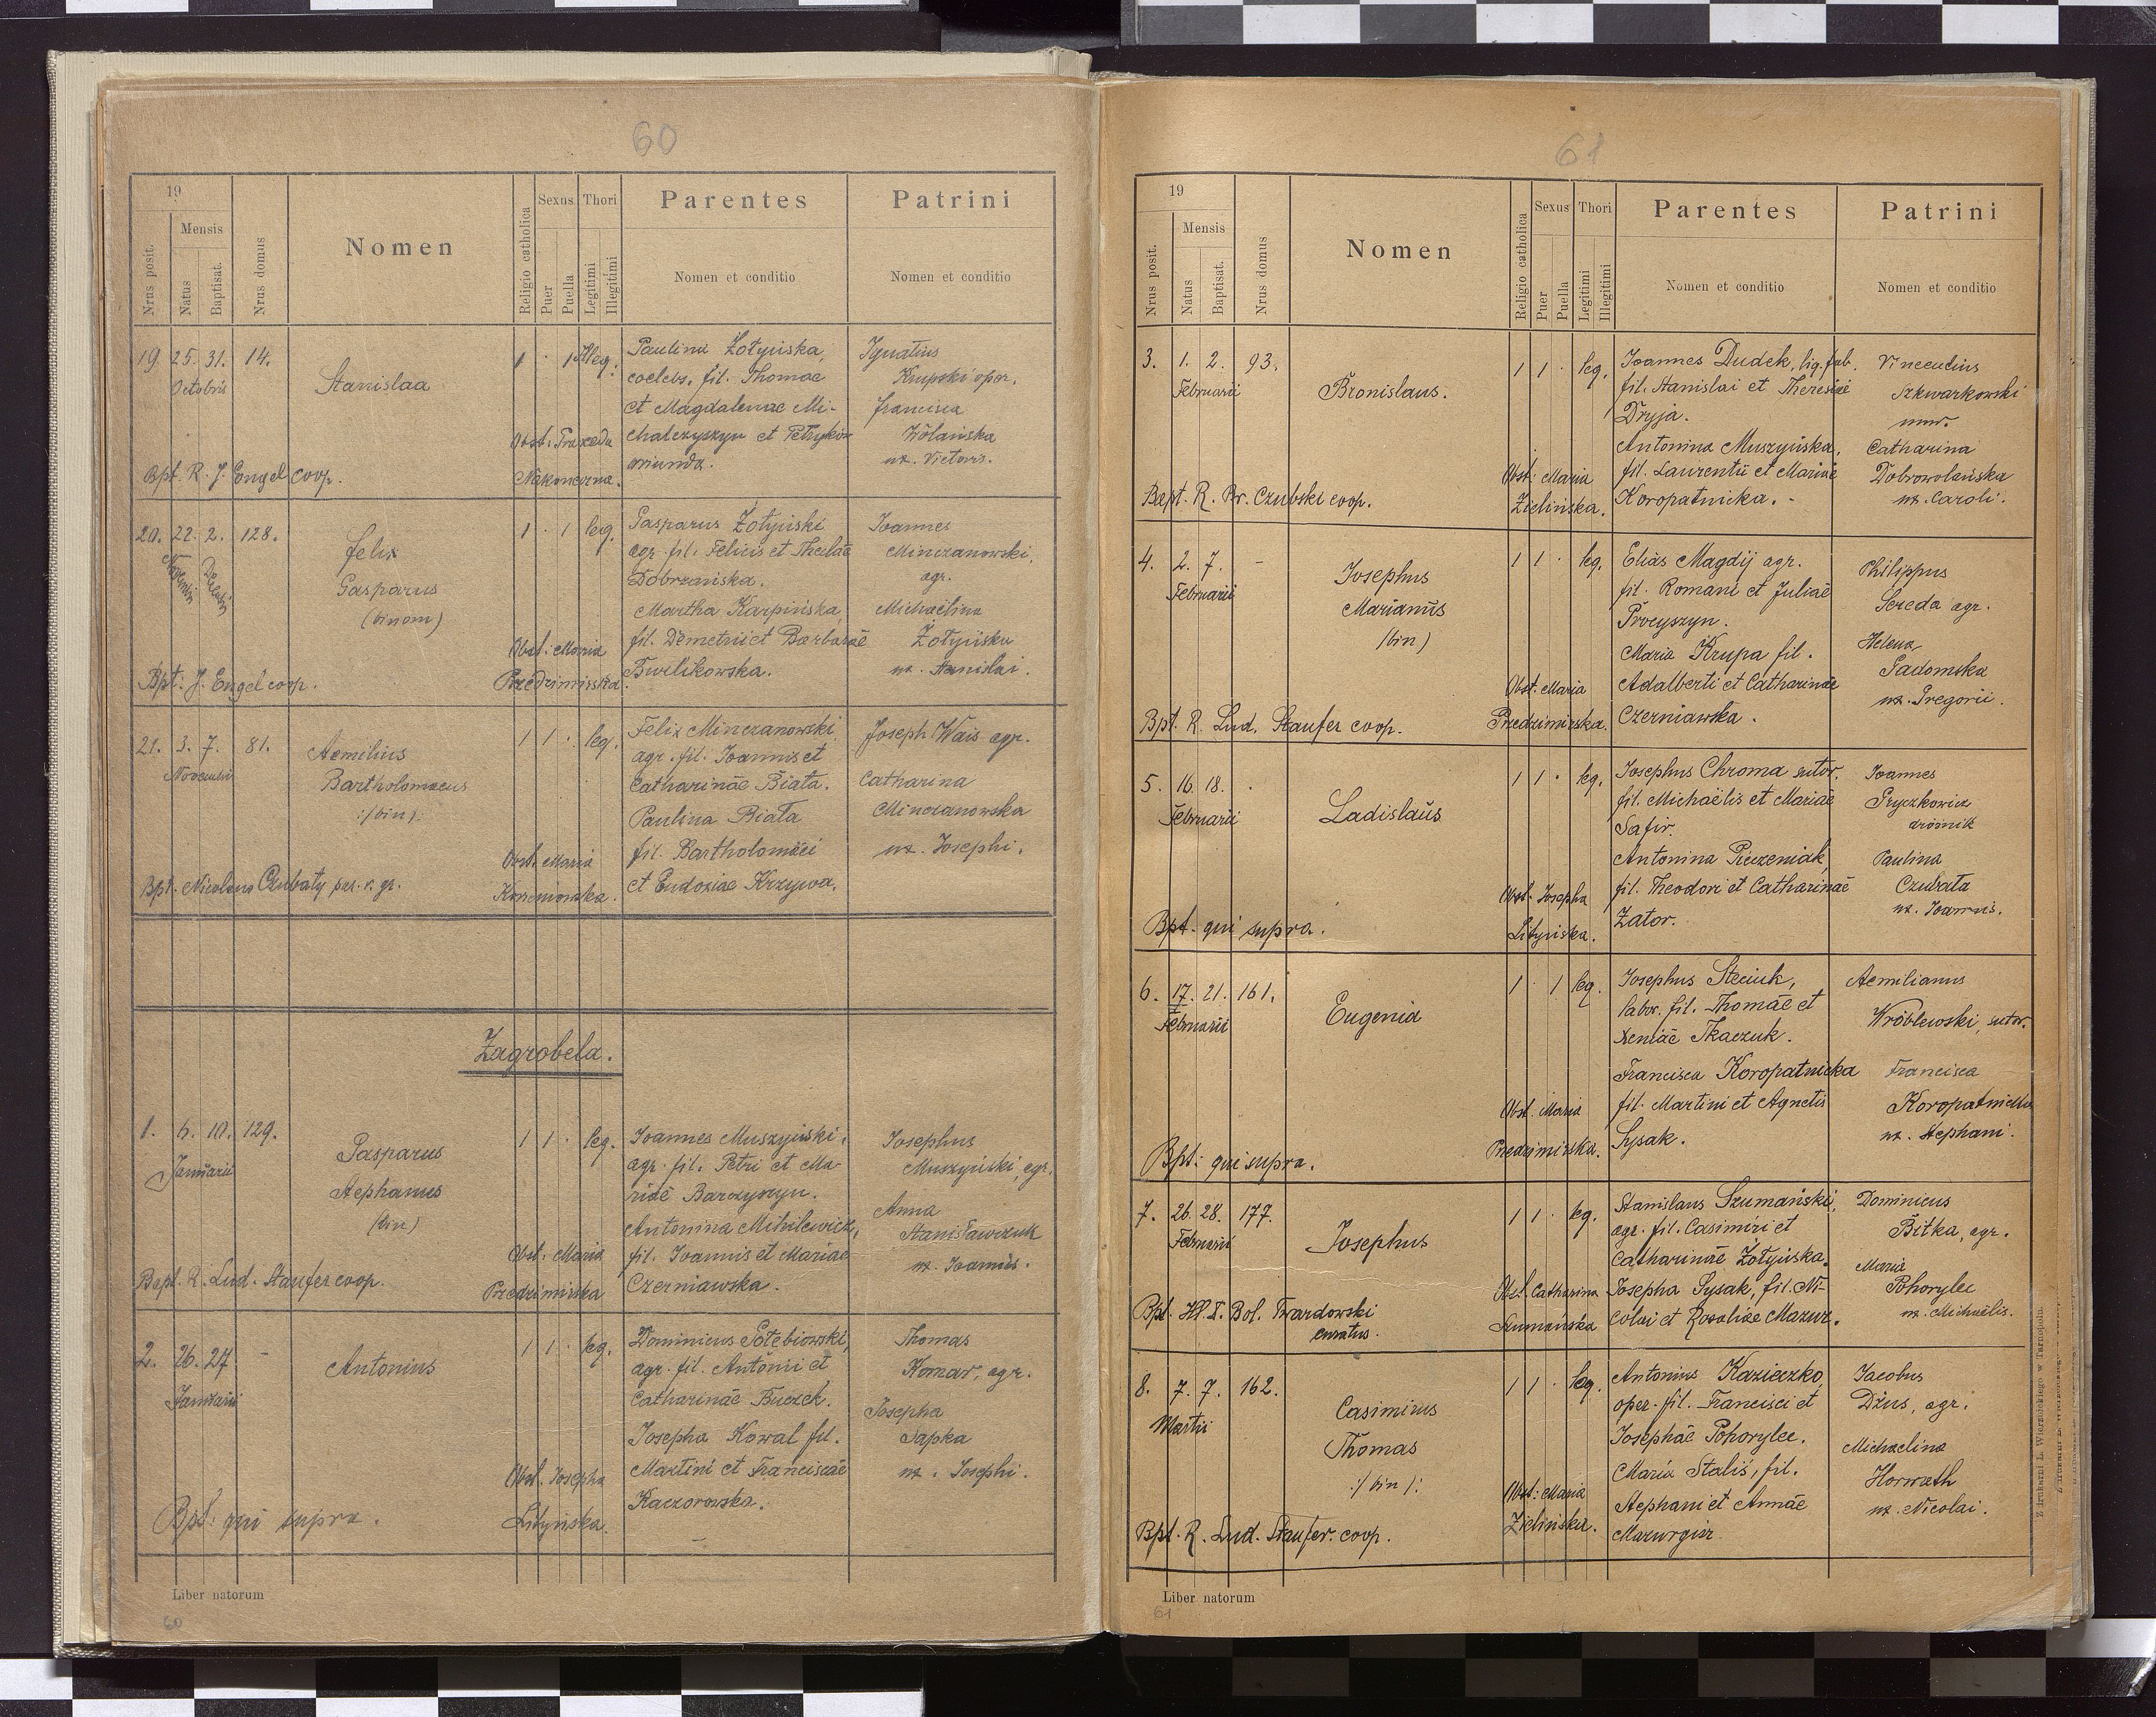 60
19
Nrus posit.
Mensis
Natus
Baptisat.
Nrus domus
Nomen
Religio catholica
Sexus
Puer
Puella
Thori
Legitimi
Illegitimi
Parentes
Nomen et conditio
Patrini
Nomen et conditio
19. 25. 31. 14.
Octobris
Stanislaa
1 · 1 Illeg.
Obst. Praxeda
Nakoneczna.
Bpt. R. J. Engel coop.
Paulina Żołyńska,
coelebs, fil. Thomae
et Magdalenae Mi-
chalczyszyn et Petryków
oriunda.
Ignatius
Krupski oper.
Francisca
Wolańska
ux. Victoris.
20. 22. 2. 128.
Novembris Decembris
Felix
Gasparus
(binom)
1 · 1 leg.
Obst: Maria
Przedzimirska.
Bpt: J. Engel coop.
Gasparus Żołyński
agr. fil. Felicis et Theclae
Dobrzańska.
Martha Karpińska,
fil. Demetrii et Barbarae
Ćwilikowska.
Joannes
Minczanowski,
agr.
Michaëlina
Żołyńska
ux. Stanislai.
21. 3. 7. 81.
Novembris
Aemilius
Bartholomaeus
:/bin/:
1 1 · leg.
Obst. Maria
Korzeniowska.
Bpt. Nicolaus Czubaty par. r. gr.
Felix Minczanowski,
agr. fil. Joannis et
Catharinae Biała.
Paulina Biała
fil. Bartholomaei
et Eudoxiae Krzywa.
Joseph Wais agr.
Catharina
Minczanowska
ux. Josephi.
Zagrobela.
1. 6. 10. 129.
Januarii
Gasparus
Stephanus
(bin)
1 1 · leg.
Obst: Maria
Przedzimirska
Bapt. R. Lud. Staufer coop.
Joannes Muszyński,
agr. fil. Petri et Ma-
riae Barczyszyn.
Antonina Mihilewicz,
fil. Joannis et Mariae
Czerniawska.
Josephus
Muszyński, agr.
Anna
Stanisławczuk
ux. Joannis.
2. 26. 27 -
Januarii
Antonius
1 1 · leg.
Obst. Josepha
Lityńska.
Bpt: qui supra.
Dominicus Gołębiowski,
agr. fil. Antonii et
Catharinae Buczek.
Josepha Kowal fil.
Martini et Franciscae
Kaczorowska.
Thomas
Komar, agr.
Josepha
Sapka
ux. Josephi.
Liber natorum
60
61
19
Nrus posit.
Mensis
Natus
Baptisat.
Nrus domus
Nomen
Religio catholica
Sexus
Puer
Puella
Thori
Legitimi
Illegitimi
Parentes
Nomen et conditio
Patrini
Nomen et conditio
3. 1. 2. 93.
Februarii
Bronislaus.
1 1 · leg.
Obst: Maria
Zielińska.
Bapt. R. Br. Czubski coop.
Joannes Dudek, lig. fab.
fil. Stanislai et Theresiae
Dryja.
Antonina Muszyńska,
fil. Laurentii et Mariae
Koropatnicka. -
Vincentius
Szkwarkowski
mur.
Catharina
Dobrowolańska
ux. Caroli.
4. 2. 7. -
Februarii
Josephus
Marianus
/bin)
1 1 · leg.
Obst. Maria
Przedzimirska.
Bpt. R. Lud. Staufer coop.
Elias Magdij agr.
fil. Romani et Juliae
Procyszyn.
Maria Krupa fil.
Adalberti et Catharinae
Czerniawska.
Philippus
Sereda agr.
Helena
Sadomska
ux. Gregorii.
5. 16. 18. ·
Februarii
Ladislaus
1 1 · leg.
Obst. Josepha
Lityńska.
Bpt. qui supra.
Josephus Chroma sutor.
fil. Michaëlis et Mariae
Safir.
Antonina Pieczeniak,
fil. Theodori et Catharinae
Zator.
Joannes
Gryczkowicz
dróżnik
Paulina
Czubata
ux. Joannis.
6. 17. 21. 161.
Februarii
Eugenia
1 · 1 leg.
Obst. Maria
Przedzimirska.
Bpt: qui supra.
Josephus Steciuk,
labor. fil. Thomae et
Xeniae Tkaczuk.
Francisca Koropatnicka
fil. Martini et Agnetis
Sysak.
Aemilianus
Wróblewski, sutor.
Francisca
Koropatnicka
ux. Stephani.
7. 26. 28. 177.
Februarii
Josephus
1 1 · leg.
Obst. Catharina
Szumańska
Bpt. Bol. Twardowski
curatus.
Stanislaus Szumański,
agr. fil. Casimiri et
Catharinae Żołyńska.
Josepha Sysak, fil. Ni-
colai et Rosaliae Mazur.
Dominicus
Bitka, agr.
Maria
Pohorylec
ux. Michaëlis.
8. 7. 7. 162.
Martii
Casimirus
Thomas
:/bin/:
1 1 · leg.
Obst: Maria
Zielińska.
Bpt. R. Lud. Staufer. coop.
Antonius Kazieczko,
oper. fil. Francisci et
Josephae Pohorylec.
Maria Stalis, fil.
Stephani et Annae
Jacobus
Dżus, agr.
Michaelina
Horwath
ux. Nicolai.
Liber natorum
61
Z drukarni L. Wierzbickiego w Tarnopolu.